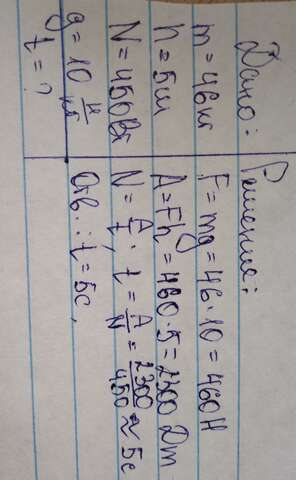 Дано:
m = 46 кг
h = 5 м
N = 450 Вт
g = 10 н/кг
t = ?
Решение:
F = mg = 46 · 10 = 460 Н
A = Fh = 460 · 5 = 2300 Дж
N = A/t ; t = A/N = 2300/450 ≈ 5c
Отв.: t = 5c,